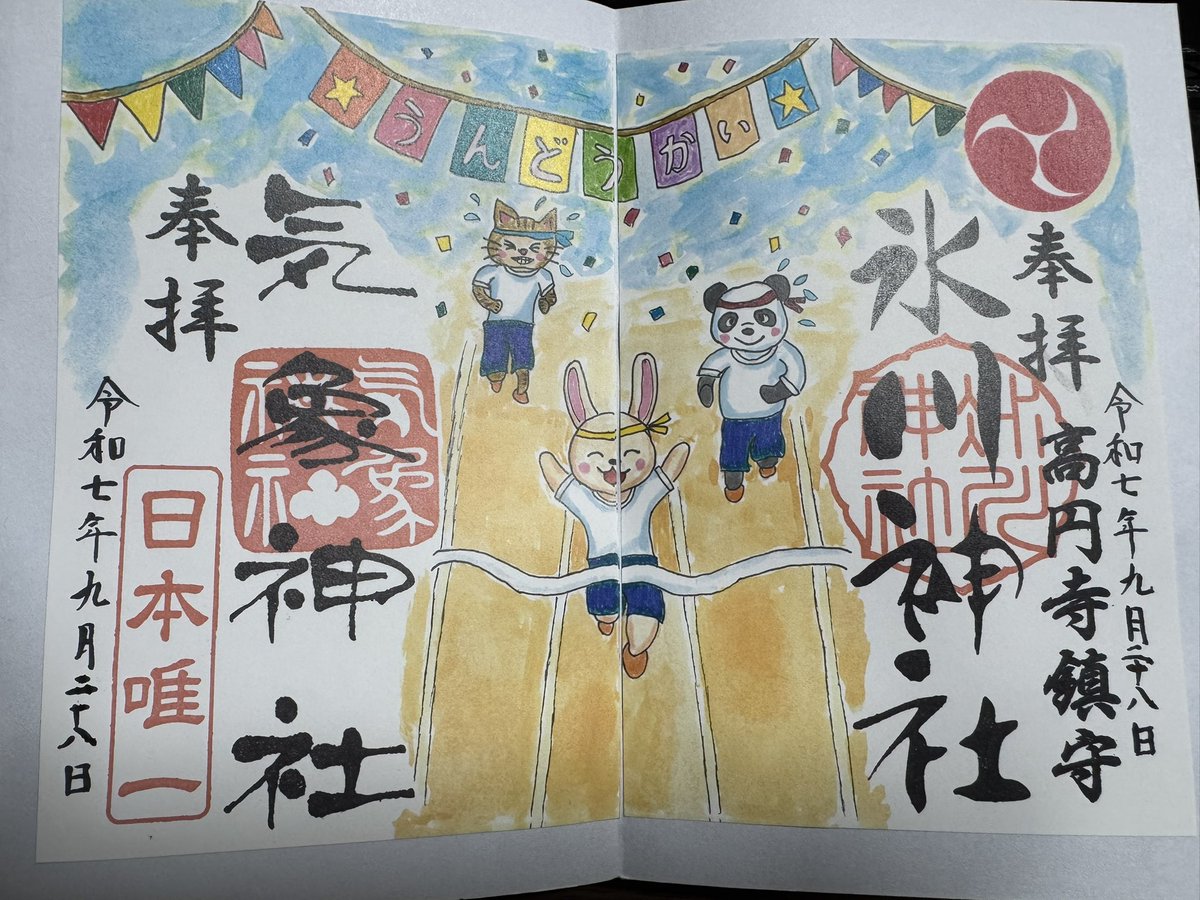 うんどうかい
奉拝
氷川神社
高円寺鎮守
令和七年九月二十八日
奉拝
気象神社
気象神社
日本唯一
令和七年九月二十八日